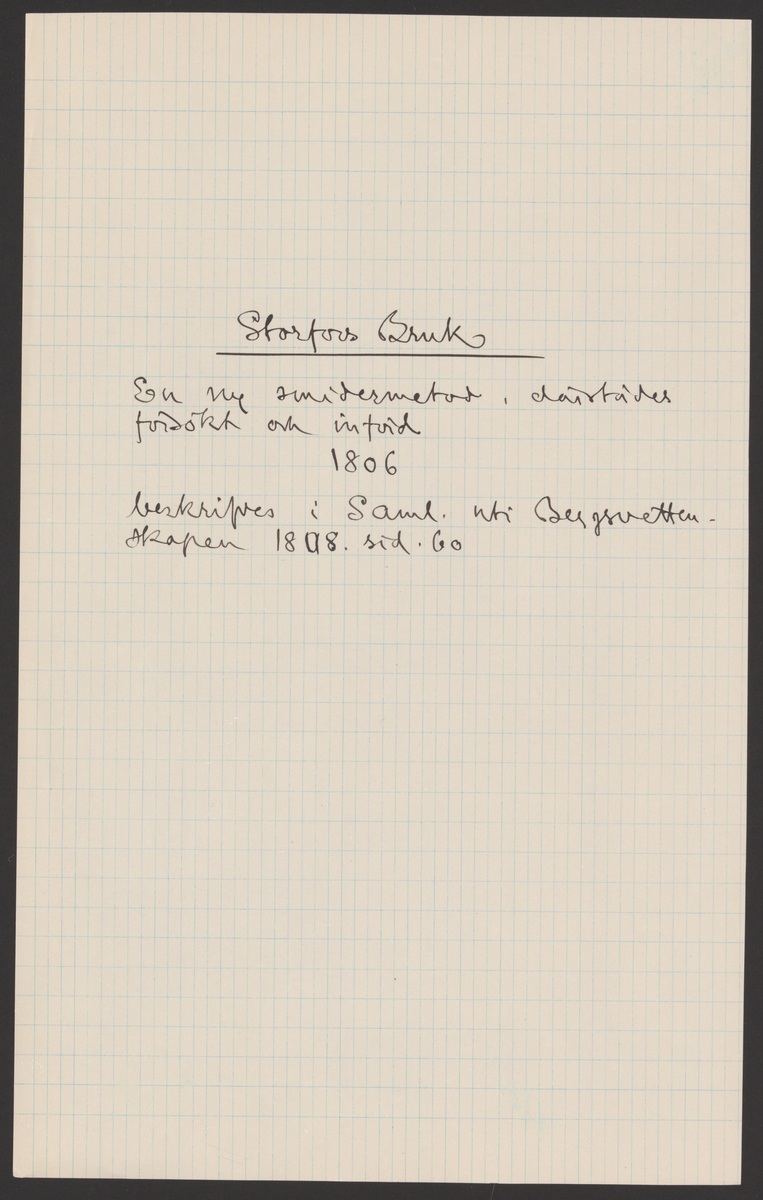 Storfors Bruk
En ny smidesmetod, därstädes
försökt och införd
1806
beskrifves i Saml. uti Bergsvetten-
skapen 1808. sid. 60